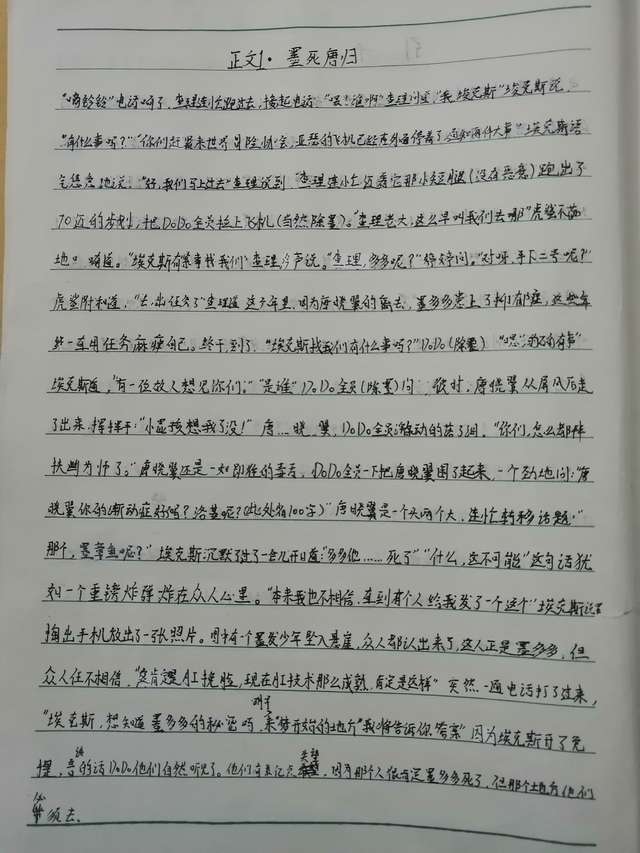 正文1·墨死唐归
"嘀铃铃"电话响了,查理连忙跑过去,接起电话:"喂!谁啊"查理问道,"我,埃克斯"埃克斯说,
"有什么事吗?""你们赶紧来世界冒险协会,亚瑟的飞机已经在外面停着了,通知两件大事"埃克斯语
气急急地说:"好,我们马上过去"查理说到 查理连忙迈着它那小短腿(没有恶意)跑出了
70迈的步划,把DoDo全员拉上飞机(当然除墨)。"查理老大,这么早叫我们去哪"虎鲨不满
地口 嘀道。"埃克斯有急事找我们"查理冷声说。"查理,多多呢?"婷婷问。"对呀,手下二号呢?"
虎鲨附和道,"去出任务了"查理道 这六年里,因为唐晓翼的离去,墨多多患上了抑郁症,这些年
都一直用任务麻痹自己。终于到了,"埃克斯找我们有什么事吗?"DoDo(除墨) "嗯,的确有事"
埃克斯道,"有一位故人想见你们。""是谁"DoDo全员(除墨)问 彼时,唐晓翼从屏风后走
了出来,挥挥手:"小屁孩想我了没!" 唐…晓…翼,DoDo全员激动的落了泪。"你们,怎么都那样
扶幽为师了。"唐晓翼还是一如即往的毒舌,DoDo全员一下把唐晓翼围了起来,一个劲地问:"唐
晓翼你的渐动症好吗?洛基呢?(此处省100字)"唐晓翼是一个头两个大,连忙转移话题:"
那个,墨章鱼呢?"埃克斯沉默了过了一会儿开口道:"多多他……死了""什么,这不可能"这句话犹
如一个重磅炸弹炸在众人心里。"本来我也不相信,直到有个人给我发了一个这个"埃克斯说着
掏出手机放出了一张照片。图中有一个墨发少年坠入悬崖,众人都认出来了,这人正是墨多多,但
众人任不相信,"这肯定是AI换脸,现在AI技术那么成熟,肯定是这样" 突然一通电话打了过来,
"埃克斯,想知道墨多多的秘密吗,来"梦开始的地方"我将告诉你答案"因为埃克斯开了免
提,的话DoDo他们自然听见了。他们有点失望,因为那个人很肯定墨多多死了,但那个地方他们
必须去。